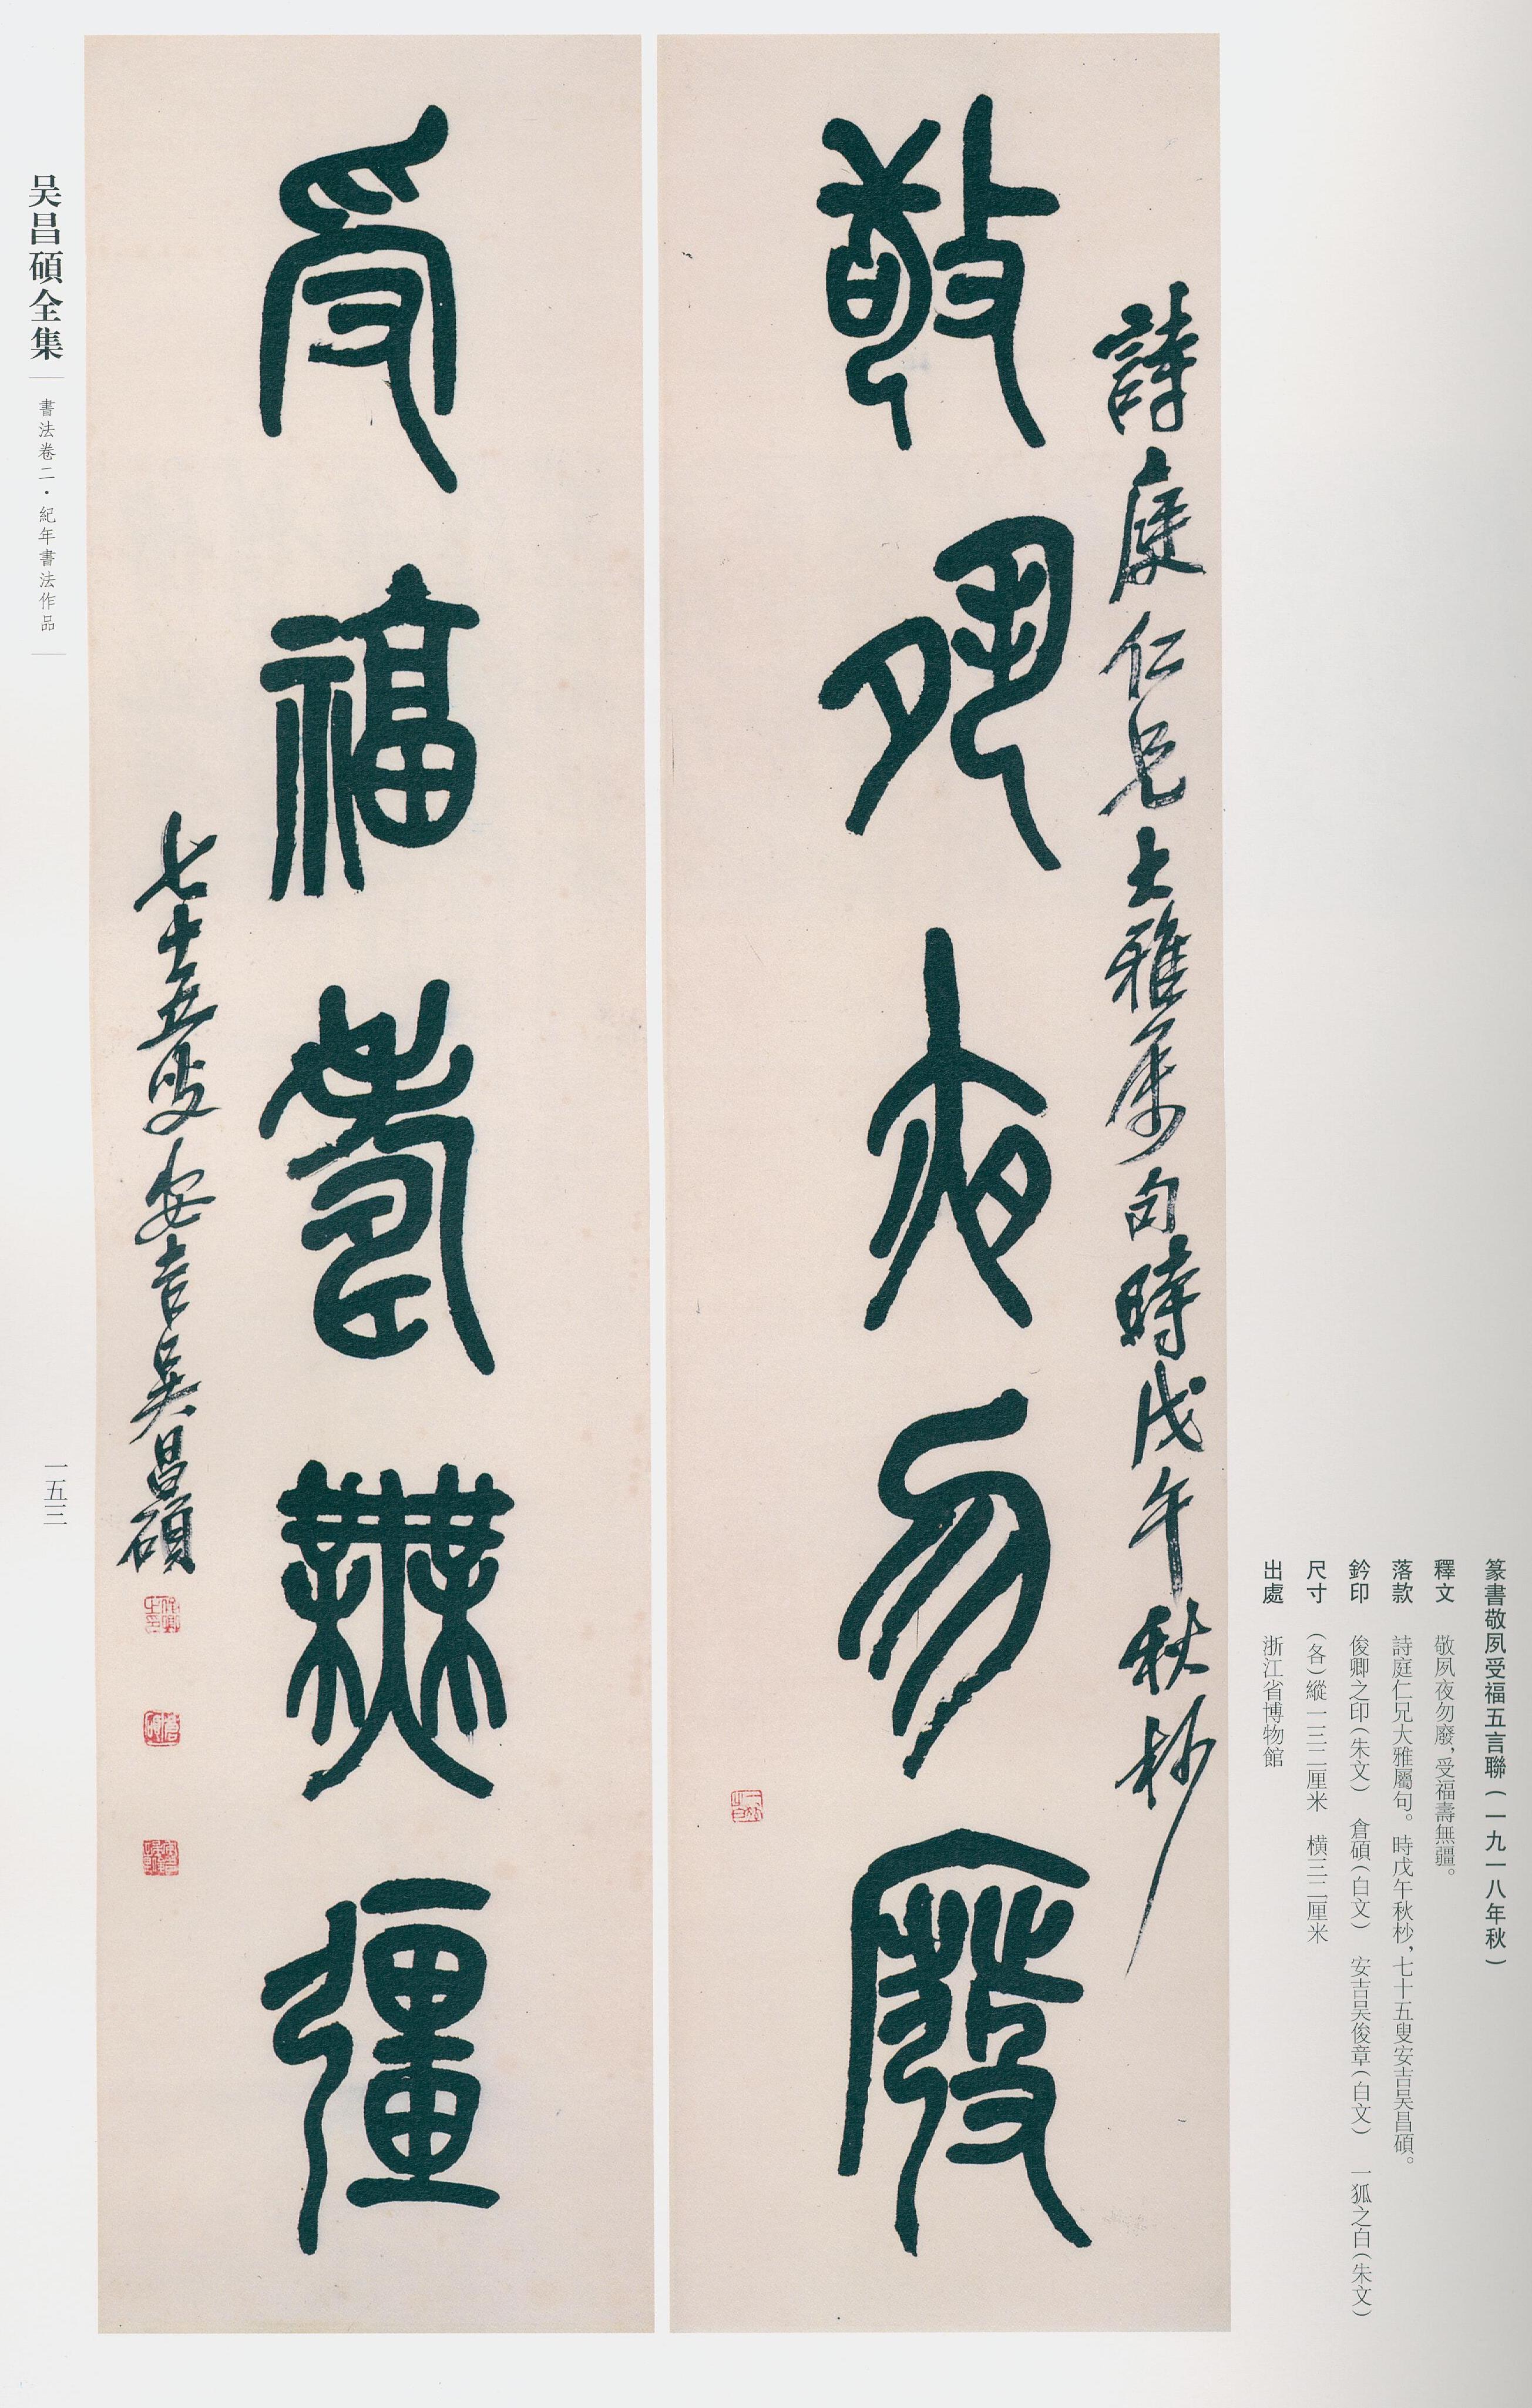 篆書敬夙受福五言聯(一九一八年秋)
釋文 敬夙夜勿廢,受福壽無疆。
落款 詩庭仁兄大雅屬句。時戊午秋杪,七十五叟安吉吴昌碩。
鈐印 俊卿之印(朱文) 倉碩(白文) 安吉吴俊章(白文) 一狐之白(朱文)
尺寸 (各)縱一三二厘米 横三二厘米
出處 浙江省博物館
詩庭仁兄大雅属句時戊午秋杪
敬夙夜勿廢
受福壽無疆
七十五叟安吉吴昌碩
吴昌碩全集
書法卷二·紀年書法作品
一五三